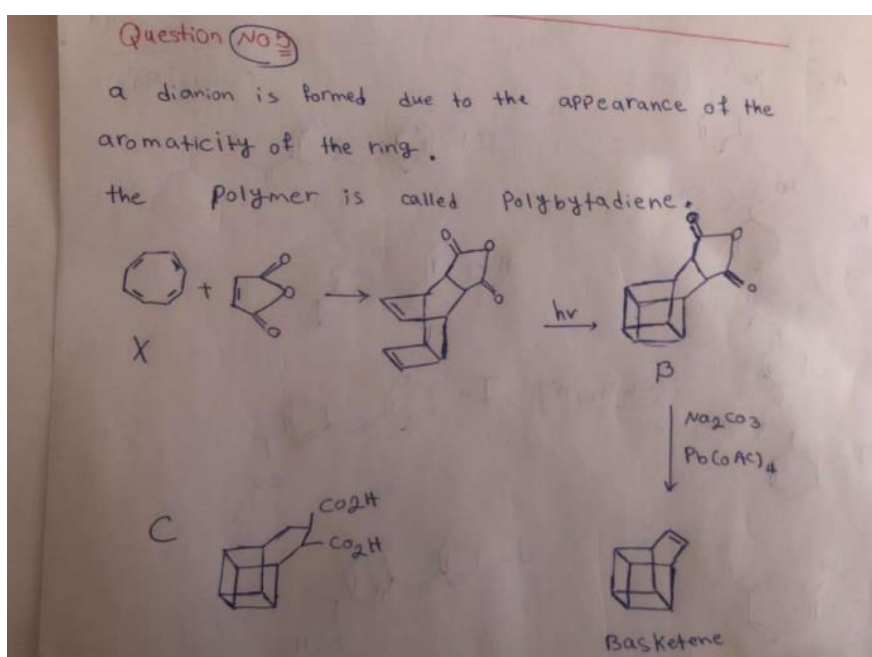 Question NO5
a dianion is formed due to the appearance of the
aromaticity of the ring.
the Polymer is called Polybytadiene.
+
O
O
O
O
O
O
hv
O
O
O
X
B
Na2CO3
Pb(OAc)4
C
CO2H
CO2H
Basketene